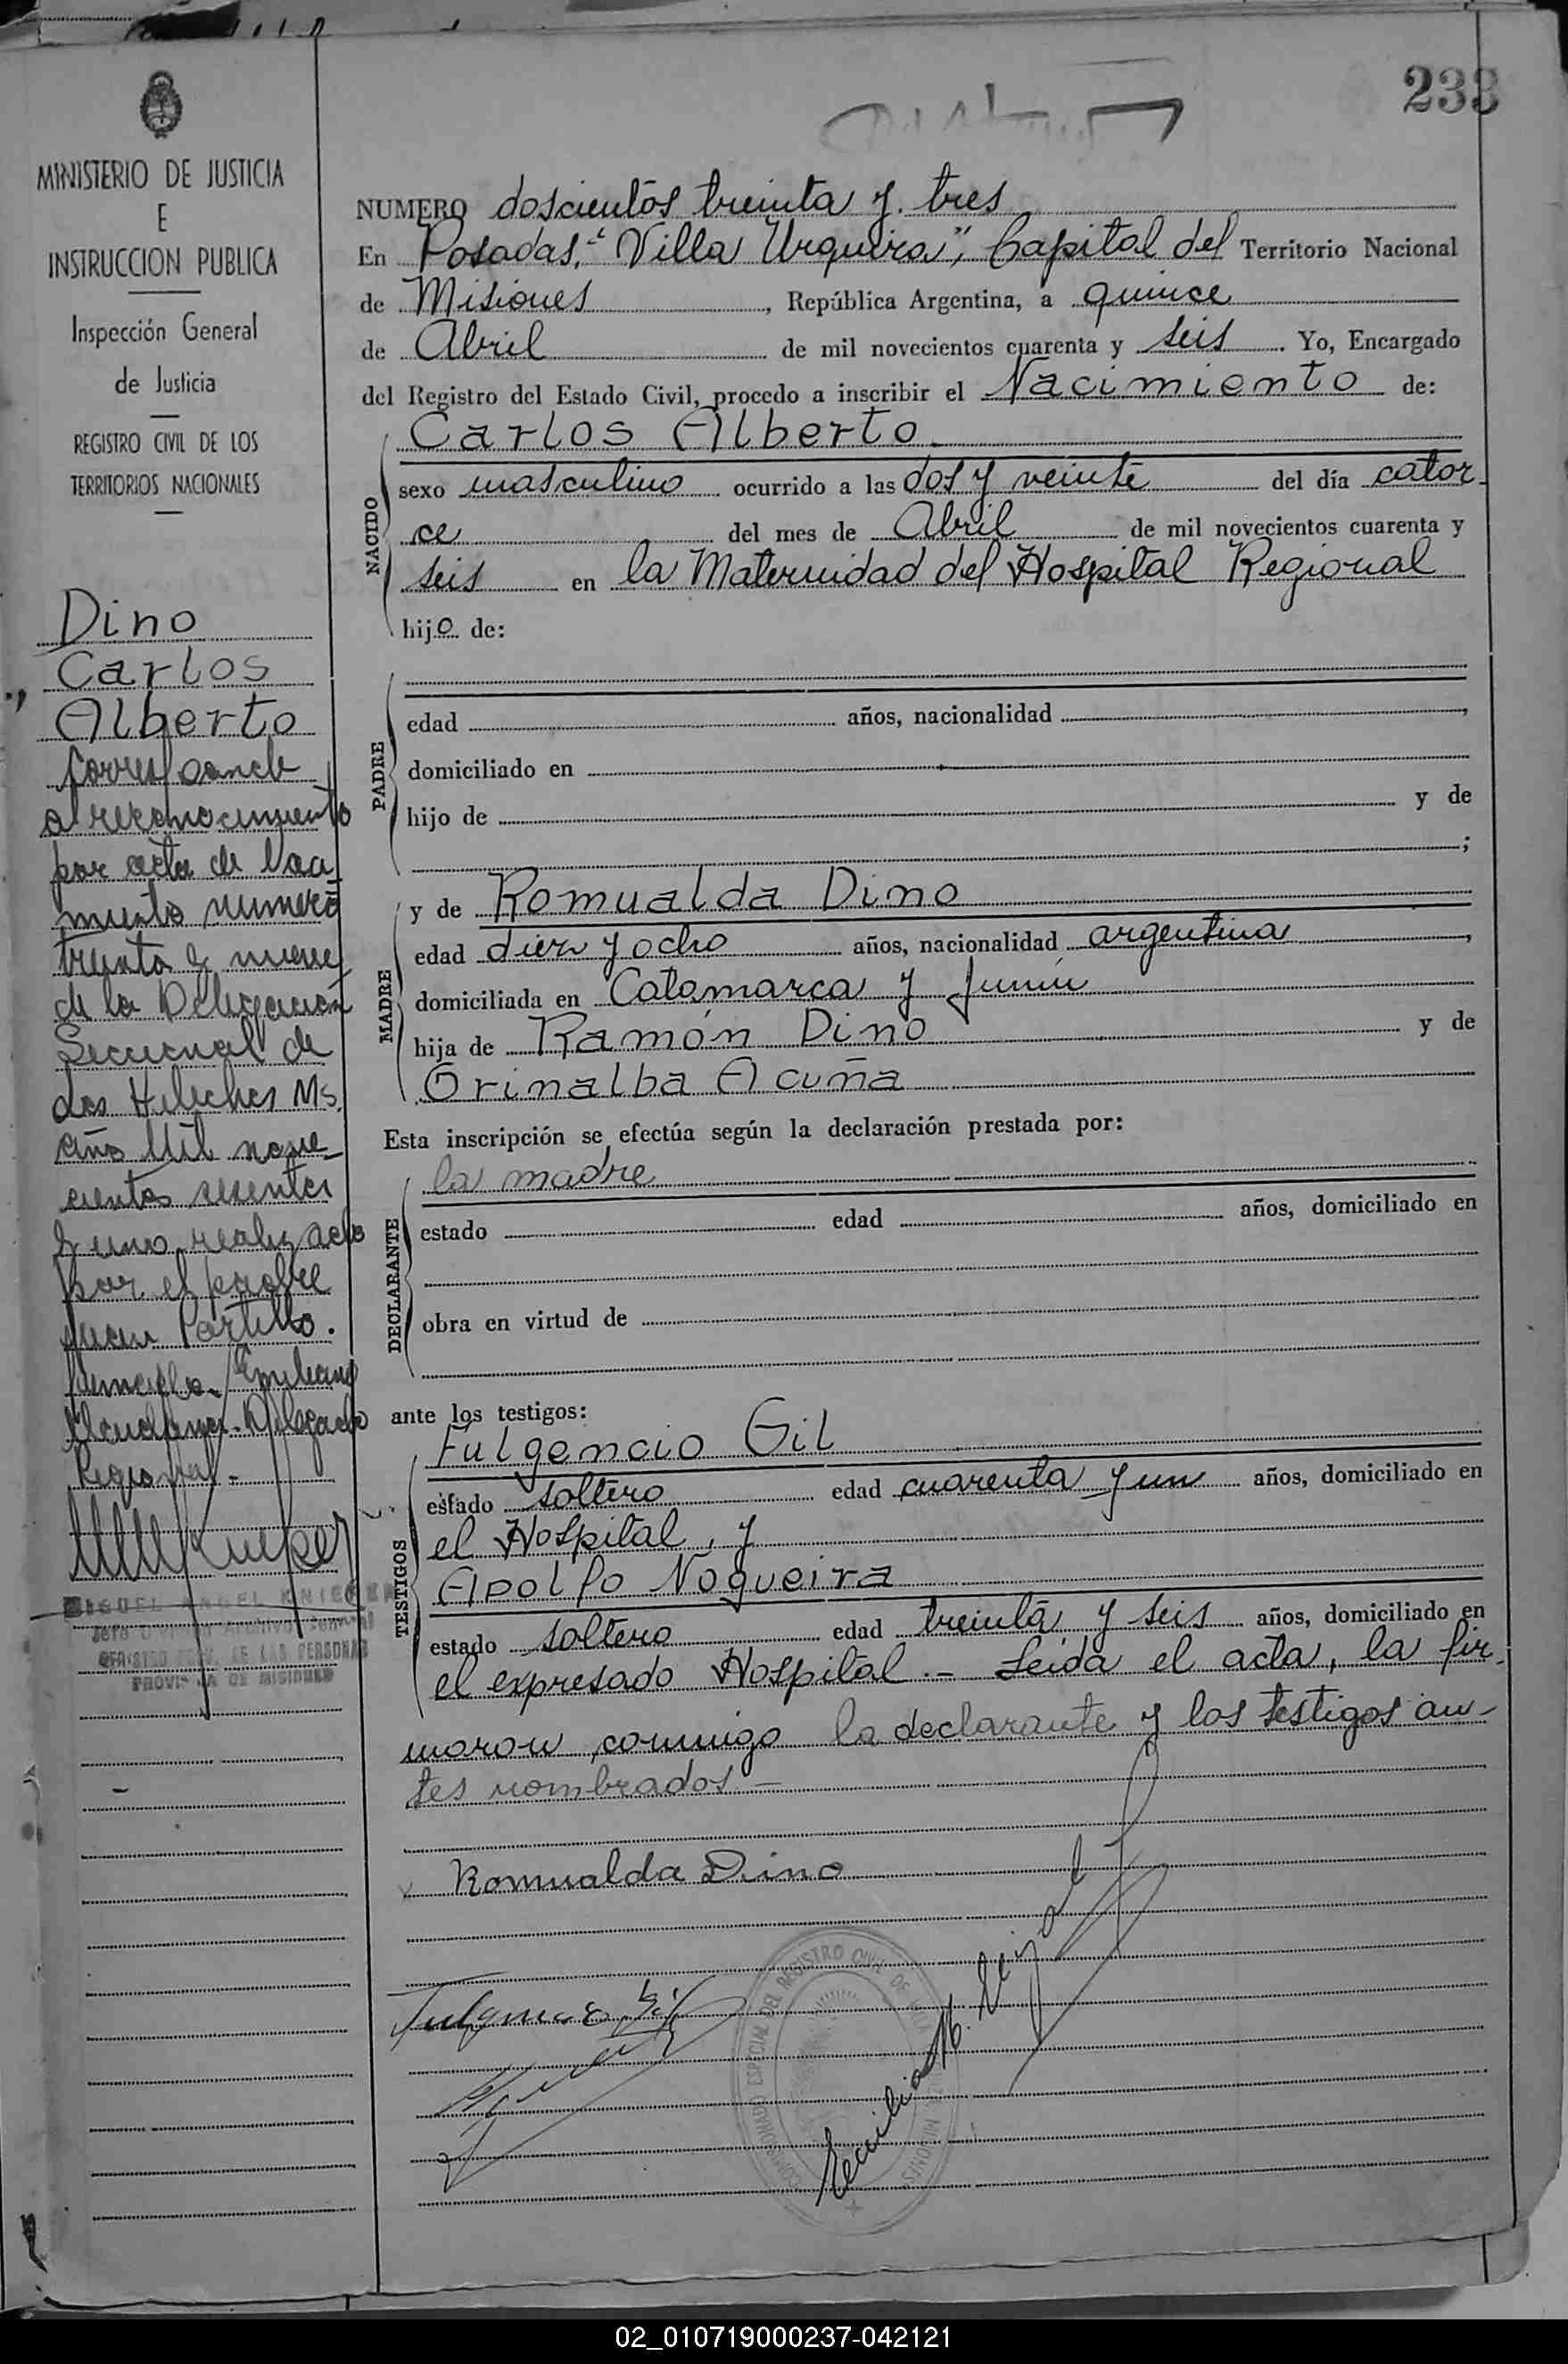 233
MINISTERIO DE JUSTICIA
E
INSTRUCCION PUBLICA
Inspección General
de Justicia
REGISTRO CIVIL DE LOS
TERRITORIOS NACIONALES
Dino
Carlos
Alberto
Corresponde
al reconocimiento
por acta de Naci
miento numero
treinta y nueve
de la Delegación
Seccional de
Los Helechos Ms.
año Mil nove-
cientos sesenta
y uno realizado
por el padre
Juan Portillo.
Delegado
Regional.-
MIGUEL ANGEL
PROVINCIA DE MISIONES
NUMERO doscientos treinta y tres
En Posadas, "Villa Urquiza", Capital del Territorio Nacional
de Misiones, República Argentina, a quince
de Abril de mil novecientos cuarenta y seis. Yo, Encargado
del Registro del Estado Civil, procedo a inscribir el Nacimiento de:
NACIDO
Carlos Alberto.
sexo masculino ocurrido a las dos y veinte del día cator-
ce del mes de Abril de mil novecientos cuarenta y
seis en la Maternidad del Hospital Regional
hijo de:
PADRE
edad años, nacionalidad ,
domiciliado en
hijo de y de
;
MADRE
y de Romualda Dino
edad diez y ocho años, nacionalidad argentina,
domiciliada en Catamarca y Junín
hija de Ramón Dino y de
Orinalba Acuña
Esta inscripción se efectúa según la declaración prestada por:
DECLARANTE
la madre
estado edad años, domiciliado en
obra en virtud de
ante los testigos:
TESTIGOS
Fulgencio Gil
estado soltero edad cuarenta y un años, domiciliado en
el Hospital, y
Adolfo Nogueira
estado soltero edad treinta y seis años, domiciliado en
el expresado Hospital.- Leída el acta, la fir-
maron conmigo la declarante y los testigos an-
tes nombrados-
Romualda Dino
Fulgencio Gil
02_010719000237-042121